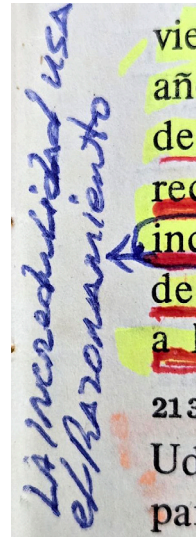 LA incredulidad usa
el Razonamiento
vie
añ
de
rec
inc
de
a
213
Ud
pa